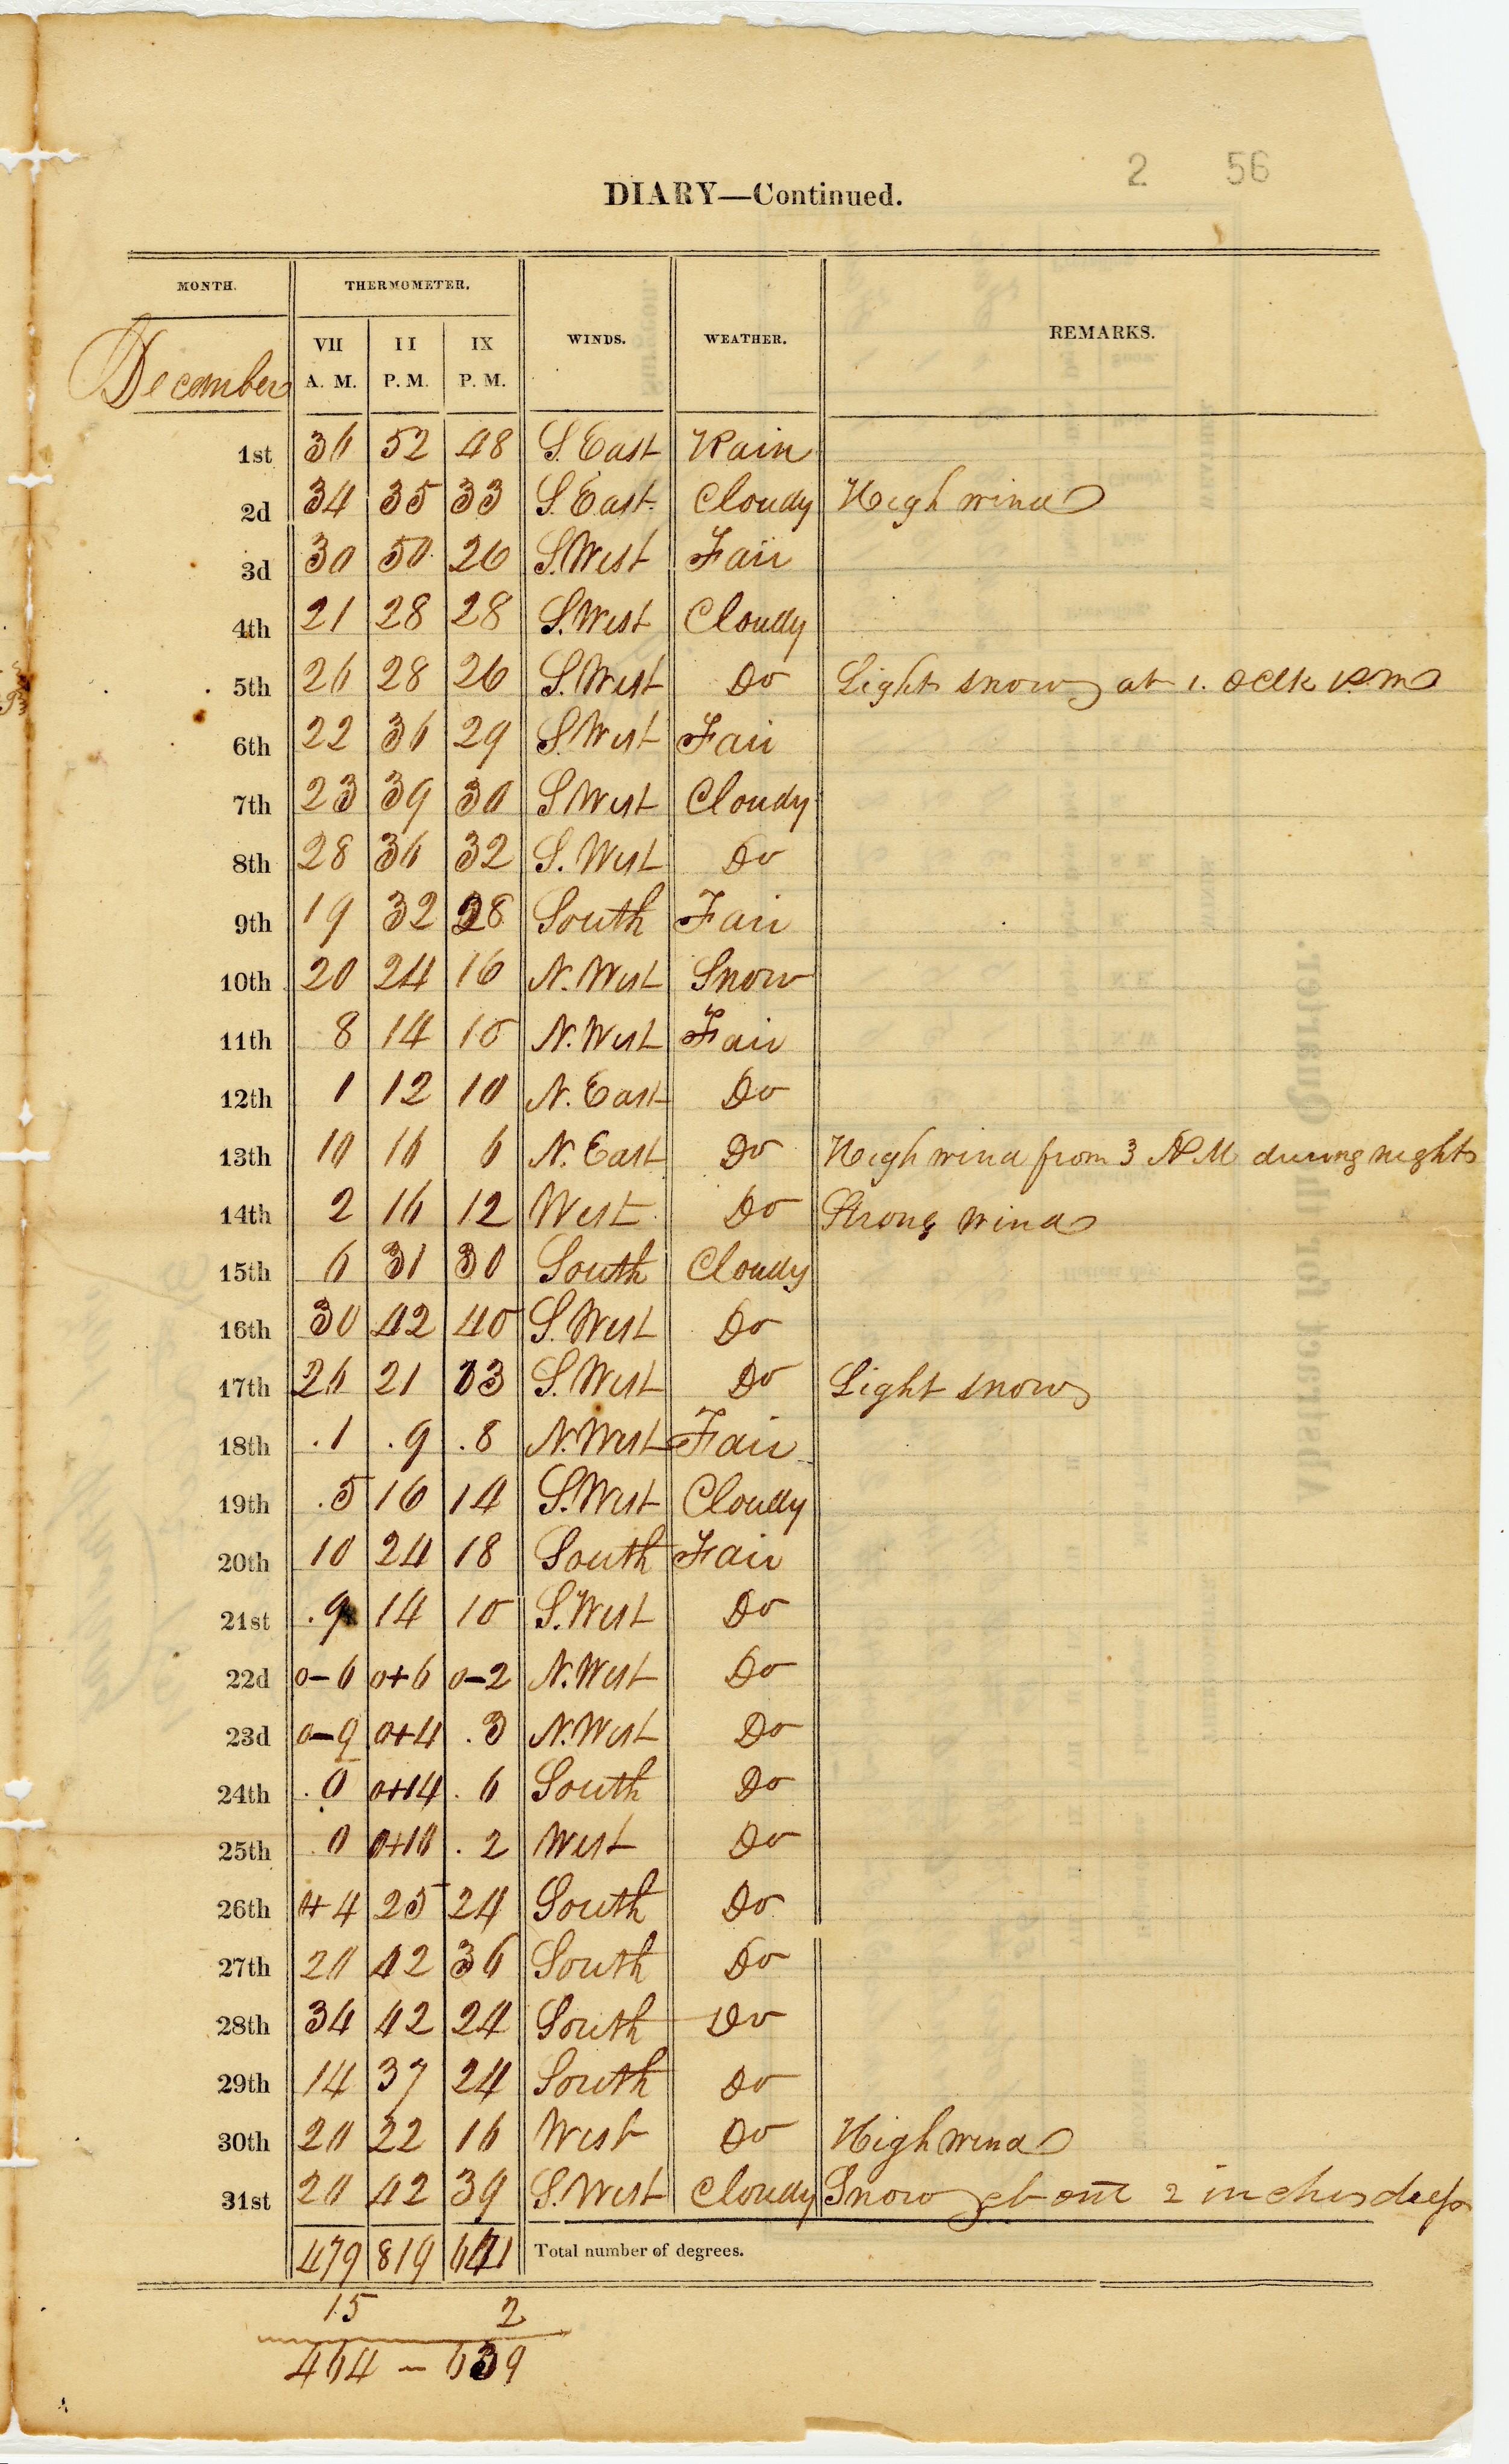 2 56
DIARY—Continued.
MONTH. THERMOMETER. WINDS. WEATHER. REMARKS.
December VII A. M. II P. M. IX P. M.
1st 36 52 48 S. East Rain
2d 34 35 33 S. East Cloudy High wind
3d 30 50 26 S. West Fair
4th 21 28 28 S. West Cloudy
5th 26 28 26 S. West Do Light snow at 1. oclk P.M
6th 22 36 29 S. West Fair
7th 23 39 30 S West Cloudy
8th 28 36 32 S. West Do
9th 19 32 28 South Fair
10th 20 24 16 N. West Snow
11th 8 14 10 N. West Fair
12th 1 12 10 N. East Do
13th 10 16 6 N. East Do High wind from 3 P M during night
14th 2 16 12 West Do Strong wind
15th 6 31 30 South Cloudy
16th 30 42 40 S. West Do
17th 26 21 13 S. West Do Light snow
18th .1 .9 .8 N. West Fair
19th .5 16 14 S. West Cloudy
20th 10 24 18 South Fair
21st .9 14 10 S. West Do
22d 0-6 0+6 0-2 N. West Do
23d 0-9 0+4 .3 N. West Do
24th .0 0+14 .6 South Do
25th .0 0+10 .2 West Do
26th +4 25 24 South Do
27th 20 42 36 South Do
28th 34 42 24 South Do
29th 14 37 24 South Do
30th 20 22 16 West Do High wind
31st 20 42 39 S. West Cloudy Snow about 2 inches deep
479 819 641 Total number of degrees.
15 2
464 - 639